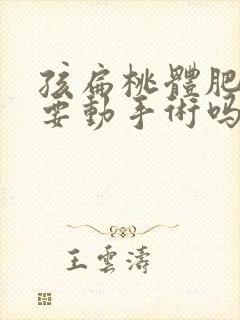 孩扁桃體肥
要動手術吗
王雲濤